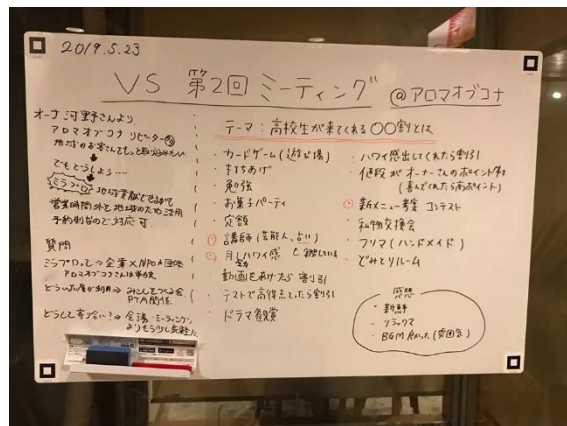 2019.5.23
VS 第2回 ミーティング @アロマオブコナ
オーナー河野さんより
アロマオブコナ リピーター多
地域のお客さんでもっと取り込みたい
でもどうしよう…
ミラプロ
地域貢献できるかも
営業時間外を地域のために活用
質問
ミラプロって→企業×NPO×団体
アロマオブコナさんは
どういった層が利用→
PTA関係
どうして
会場・ミーティング
よりもう少し気軽に
テーマ:高校生が来てくれる○○割とは
・カードゲーム(遊び場)
・打ちあげ
・勉強
・お菓子パーティ
・定額
・講師(芸能人、占い)
・ハワイ感
・動画をあげたら割り引
・テストで高得点とったら割引
・ドラマ鑑賞
・ハワイ感出してくれたら割引
・値段がオーナーさんのポイント制
(喜んでくれたら高ポイント)
・新メニュー考案 コンテスト
・私物交換会
・フリマ(ハンドメイド)
・ひみとりルーム
感想
・新鮮
・リラックス
・BGM 良かった(雰囲気)